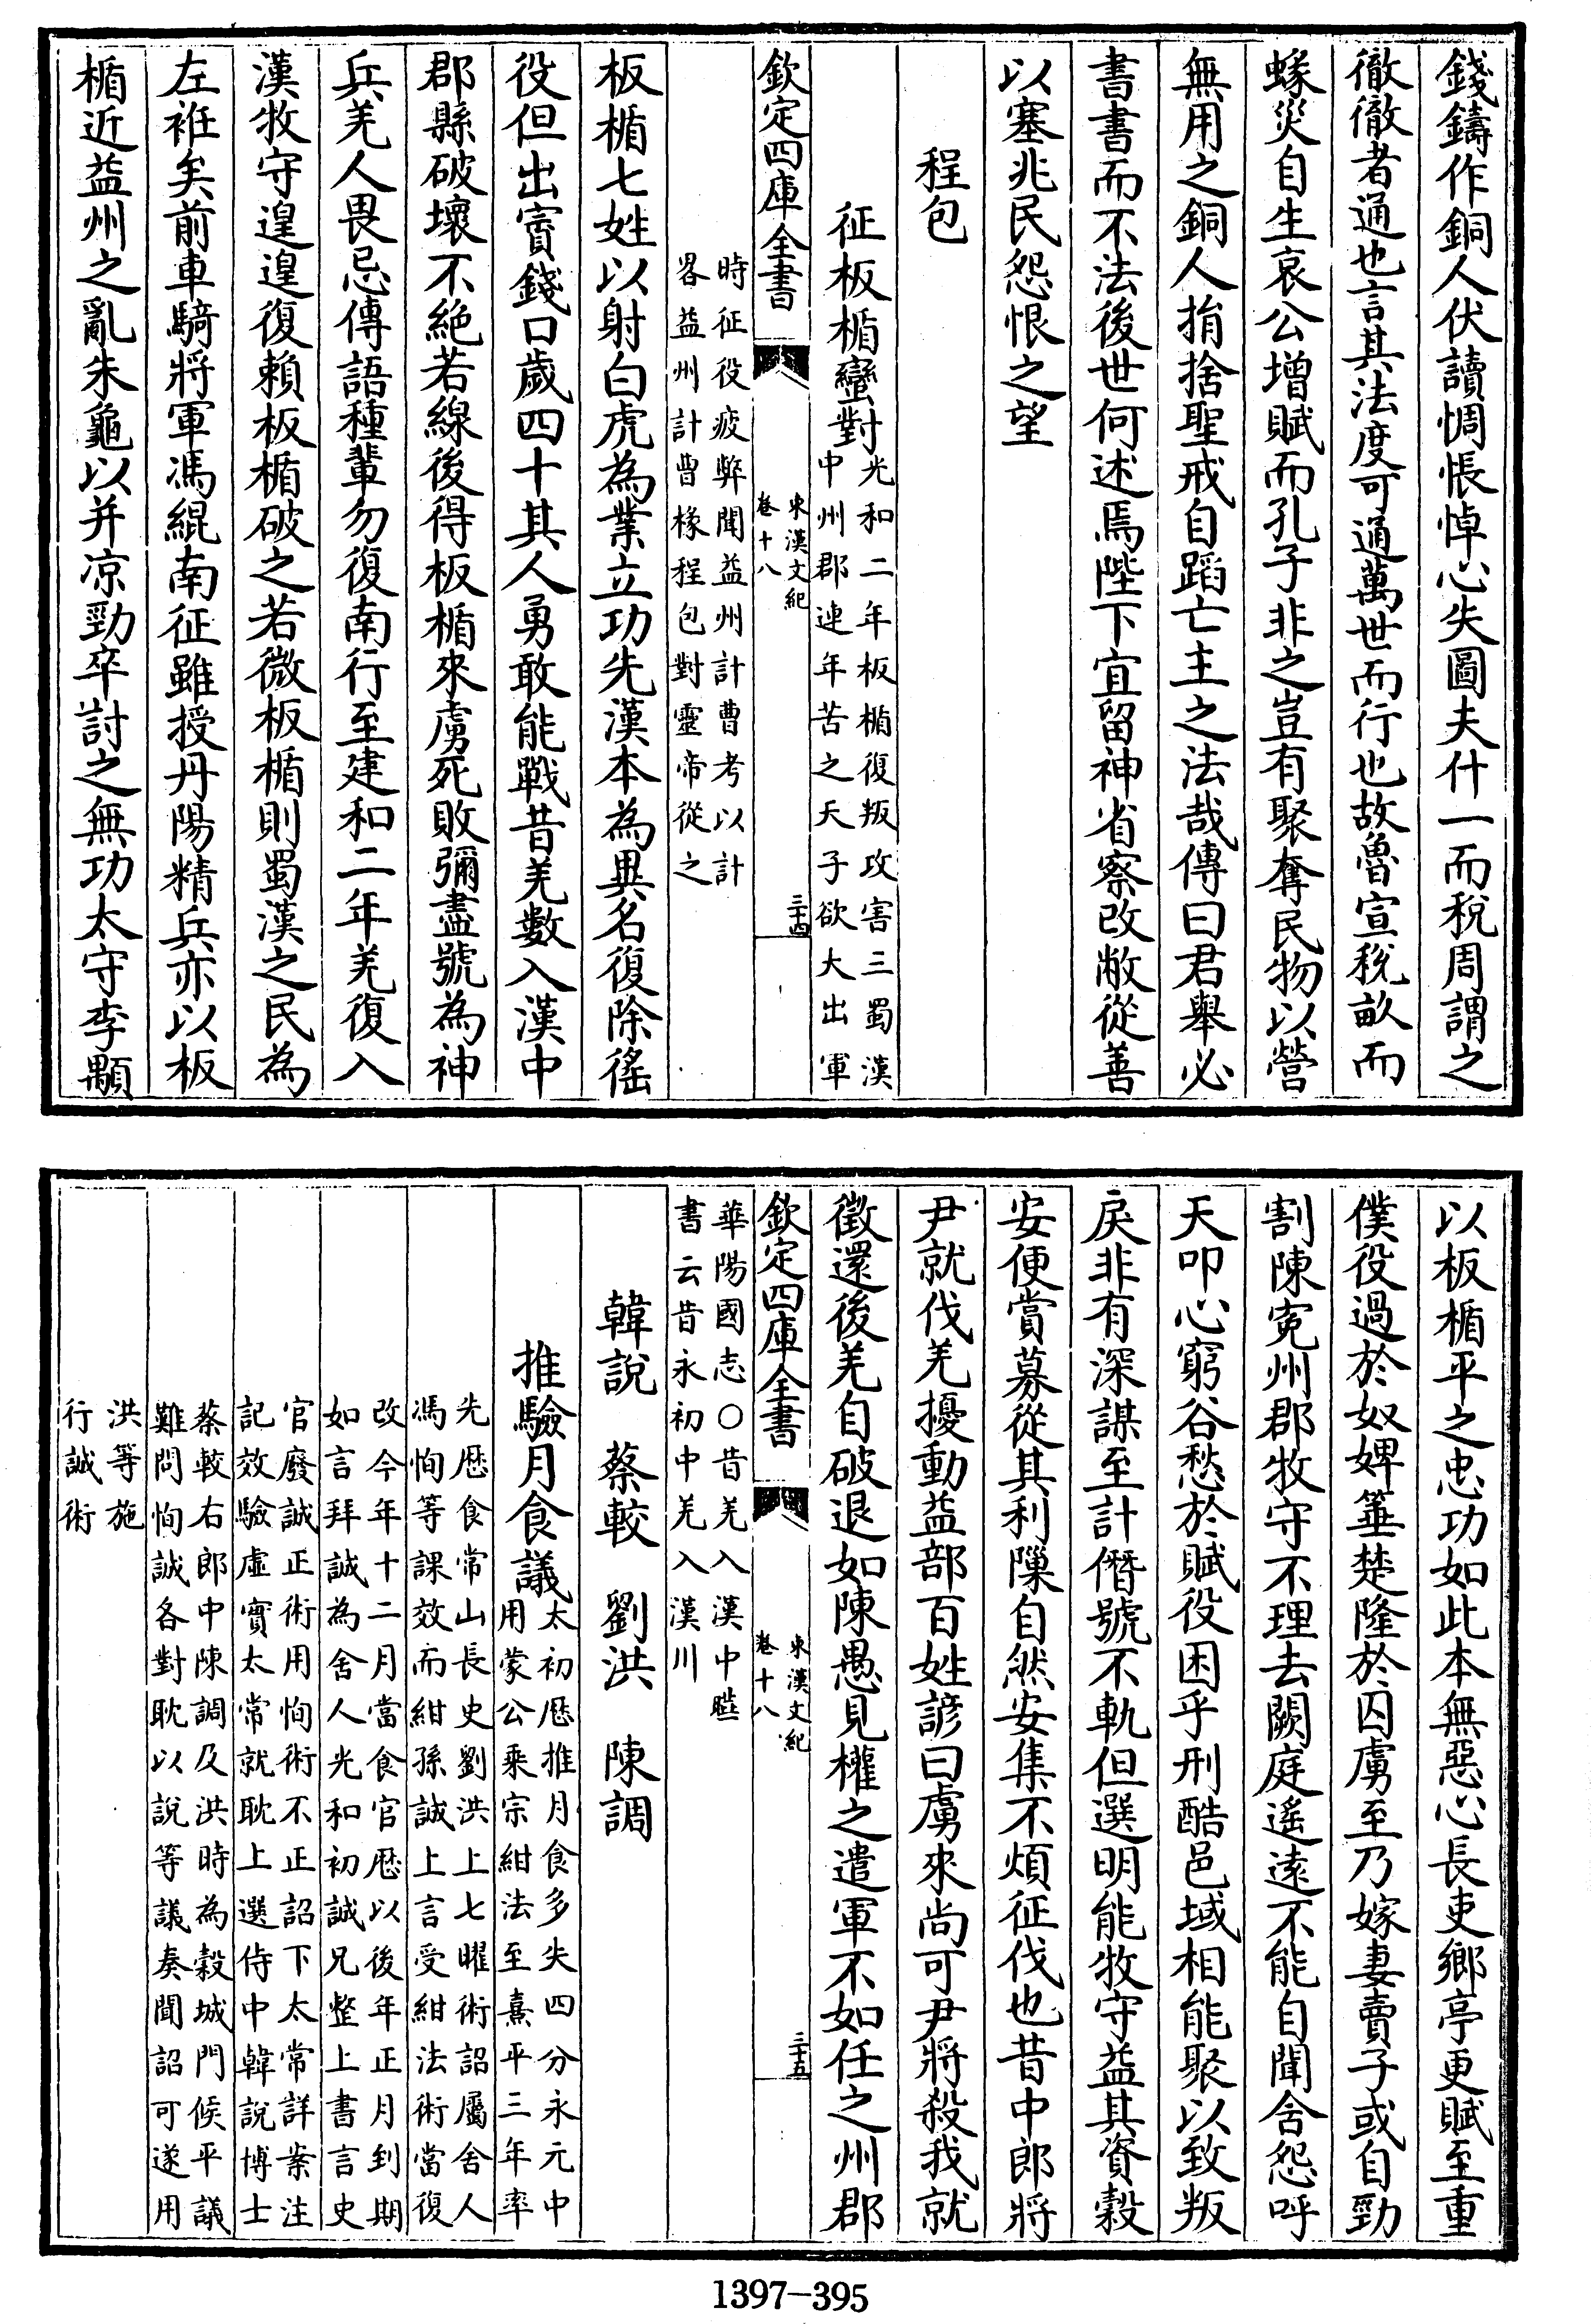 錢鑄作銅人伏讀惆悵悼心失圖夫什一而稅周謂之
徹徹者通也言其法度可通萬世而行也故魯宣稅畝而
蝝災自生哀公增賦而孔子非之豈有聚奪民物以營
無用之銅人捐捨聖戒自蹈亡主之法哉傳曰君舉必
書書而不法後世何述焉陛下宜留神省察改敝從善
以塞兆民怨恨之望
程包
征板楯蠻對
光和二年板楯復叛攻害三蜀漢
中州郡連年苦之天子欲大出軍
欽定四庫全書
東漢文紀
卷十八
三十四
時征役疲弊聞益州計曹考以計
畧益州計曹椽程包對靈帝從之
板楯七姓以射白虎為業立功先漢本為異名復除徭
役但出賨錢口歲四十其人勇敢能戰昔羌數入漢中
郡縣破壞不絕若線後得板楯來虜死敗彌盡號為神
兵羌人畏忌傳語種輩勿復南行至建和二年羌復入
漢牧守遑遑復賴板楯破之若微板楯則蜀漢之民為
左袵矣前車騎將軍馮緄南征雖授丹陽精兵亦以板
楯近益州之亂朱龜以并凉勁卒討之無功太守李顒
以板楯平之忠功如此本無惡心長吏鄉亭更賦至重
僕役過於奴婢箠楚隆於囚虜至乃嫁妻賣子或自勁
割陳寃州郡牧守不理去闕庭遙遠不能自聞含怨呼
天叩心窮谷愁於賦役困乎刑酷邑域相能聚以致叛
戾非有深謀至計僭號不軌但選明能牧守益其資穀
安便賞募從其利隟自然安集不煩征伐也昔中郎將
尹就伐羌擾動益部百姓諺曰虜來尚可尹將殺我就
徵還後羌自破退如陳愚見權之遣軍不如任之州郡
欽定四庫全書
東漢文紀
卷十八
三十五
華陽國志○昔羌入漢中
書云昔永初中羌入漢川
韓說　蔡較　劉洪　陳調
推驗月食議
太初厯推月食多失四分永元中
用蒙公乘宗紺法至熹平三年率
先厯食常山長史劉洪上七曜術詔屬舍人
馮恂等課效而紺孫誠上言受紺法術當復
改今年十二月當食官厯以後年正月到期
如言拜誠為舍人光和初誠兄整上書言史
官廢誠正術用恂術不正詔下太常詳案注
記效驗虛實太常就耽上選侍中韓說博士
蔡較右郎中陳調及洪時為穀城門候平議
難問恂誠各對耽以說等議奏聞詔可遂用
洪等施
行誠術
1397—395